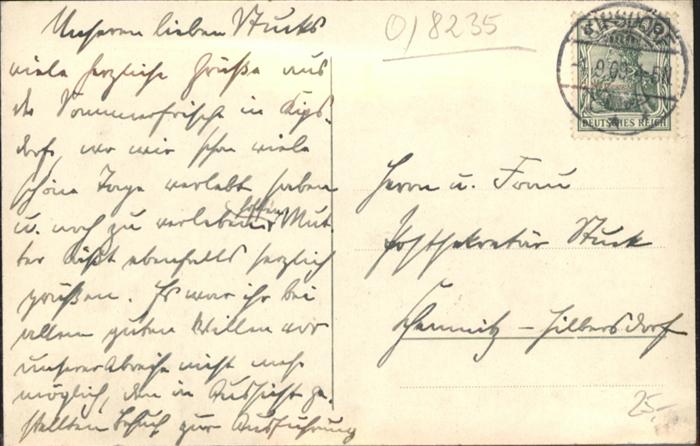 Unseren lieben Stucks
viele herzliche Grüße aus
der Sommerfrische in Kips-
dorf, wo wir schon viele
schöne Tage verlebt haben
u. noch zu verleben hoffen. Mut-
ter läßt ebenfalls herzlich
grüßen. Es war ihr bei
allem guten Willen vor
unserer Abreise nicht mehr
möglich, den in Aussicht ge-
stellten Besuch zur Ausführung
0/8235
KIPSDORF
9.09.
DEUTSCHES REICH
Herrn u. Frau
Postsekretär Stuck
Chemnitz-Hilbersdorf
25,-